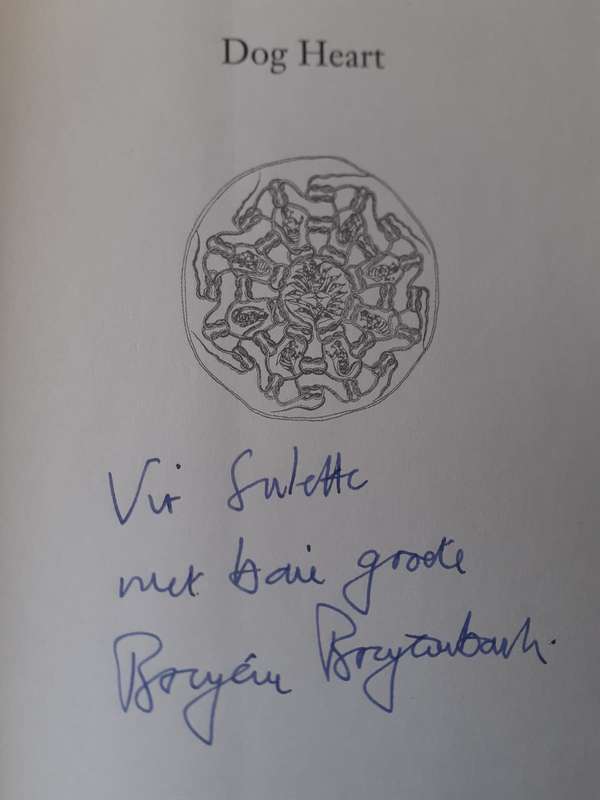 Dog Heart
Vir Sulette
met baie groete
Breyten Breytenbach.